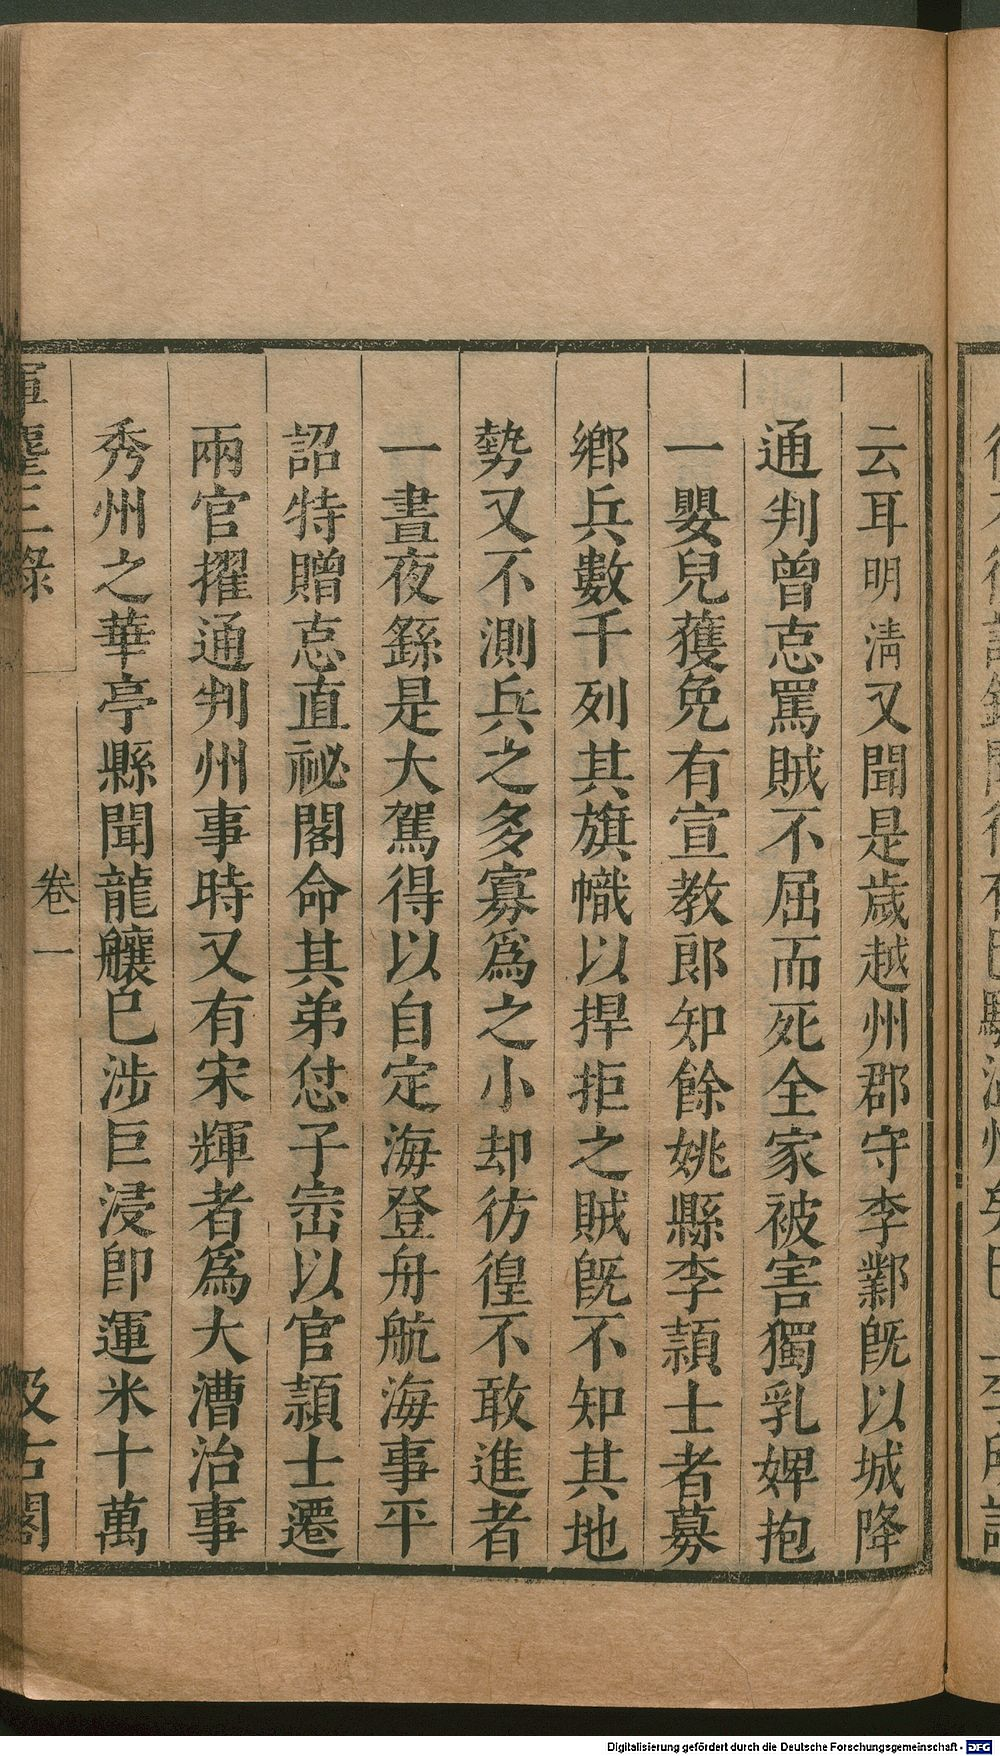 云耳明淸又聞是歲越州郡守李鄴旣以城降
通判曾㤀罵賊不屈而死全家被害獨乳婢抱
一嬰兒獲免有宣教郎知餘姚縣李頴士者募
鄉兵數千列其旗幟以捍拒之賊旣不知其地
勢又不測兵之多寡爲之小却彷徨不敢進者
一晝夜繇是大駕得以自定海登舟航海事平
詔特贈㤀直祕閣命其弟㤝子崈以官頴士遷
兩官擢通判州事時又有宋輝者爲大漕治事
秀州之華亭縣聞龍艬已涉巨浸卽運米十萬
軍麈三錄
卷一
汲古閣
Digitalisierung gefördert durch die Deutsche Forschungsgemeinschaft - DFG